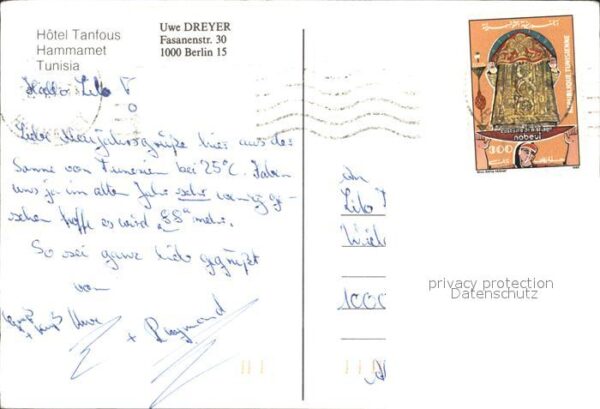 Hôtel Tanfous
Hammamet
Tunisia
Uwe DREYER
Fasanenstr. 30
1000 Berlin 15
Hallo Lilo
Liebe Neujahrsgrüße hier aus der
Sonne von Tunesien bei 25°C. Haben
uns ja im alten Jahr sehr wenig ge-
sehen hoffe es wird "88" mehr.
So sei ganz lieb gegrüßt
von
Uwe + Raymond
An
Lilo
1000
REPUBLIQUE TUNISIENNE
nabeul
300
privacy protection
Datenschutz